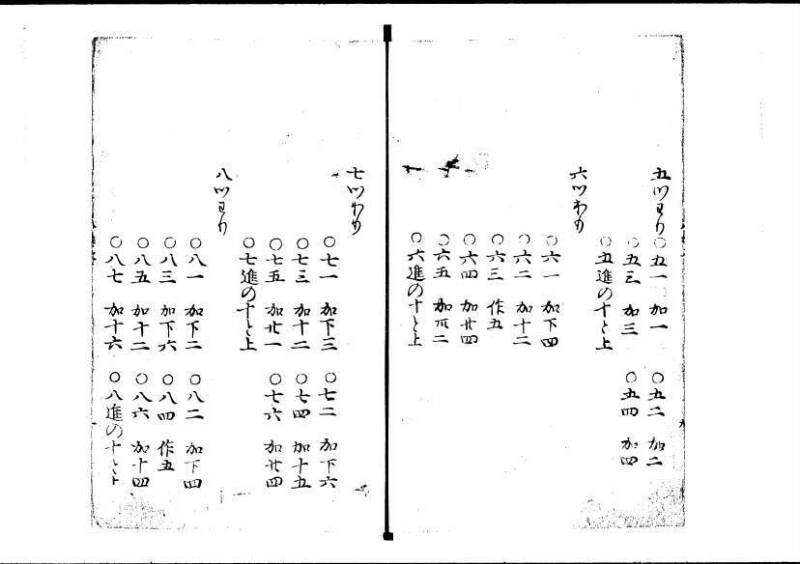 五ツわり ○五一 加一 ○五二 加二
○五三 加三 ○五四 加四
○五進の十と上
六ツわり
○六一 加下四
○六二 加十二
○六三 作五
○六四 加廿四
○六五 加卅二
○六進の十と上
七ツわり
○七一 加下三 ○七二 加下六
○七三 加十二 ○七四 加十五
○七五 加廿一 ○七六 加廿四
○七進の十と上
八ツわり
○八一 加下二 ○八二 加下四
○八三 加下六 ○八四 作五
○八五 加十二 ○八六 加十四
○八七 加十六 ○八進の十と上